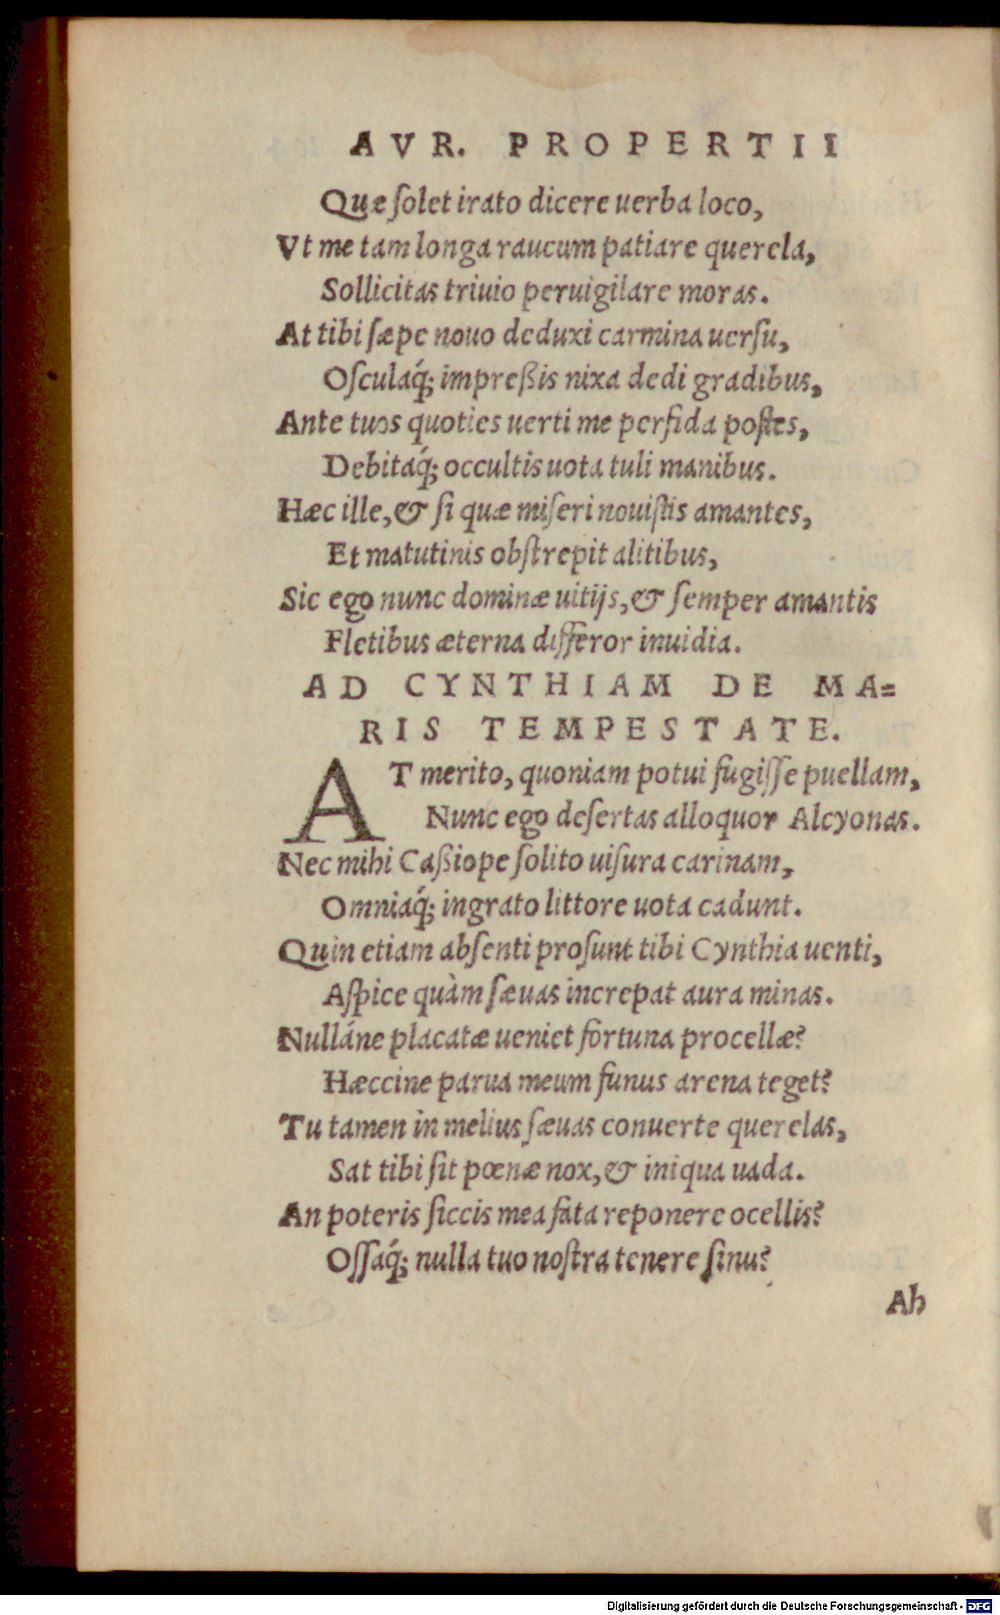 AVR. PROPERTII
Quæ ſolet irato dicere uerba loco,
Vt me tam longa raucum patiare querela,
Sollicitas triuio peruigilare moras.
At tibi ſæpe nouo deduxi carmina uerſu,
Oſculaq́; impreßis nixa dedi gradibus,
Ante tuos quoties uerti me perfida poſtes,
Debitaq́; occultis uota tuli manibus.
Hæc ille, & ſi quæ miſeri nouiſtis amantes,
Et matutinis obſtrepit alitibus,
Sic ego nunc dominæ uitijs, & ſemper amantis
Fletibus æterna differor inuidia.
AD CYNTHIAM DE MA=
RIS TEMPESTATE.
AT merito, quoniam potui fugiſſe puellam,
Nunc ego deſertas alloquor Alcyonas.
Nec mihi Caßiope ſolito uiſura carinam,
Omniaq́; ingrato littore uota cadunt.
Quin etiam abſenti proſunt tibi Cynthia uenti,
Aſpice quàm ſæuas increpat aura minas.
Nulláne placatæ ueniet fortuna procellæ?
Hæccine parua meum funus arena teget?
Tu tamen in melius ſæuas conuerte querelas,
Sat tibi ſit pœnæ nox, & iniqua uada.
An poteris ſiccis mea fata reponere ocellis?
Oſſaq́; nulla tuo noſtra tenere ſinu?
Ah
Digitalisierung gefördert durch die Deutsche Forschungsgemeinschaft - DFG